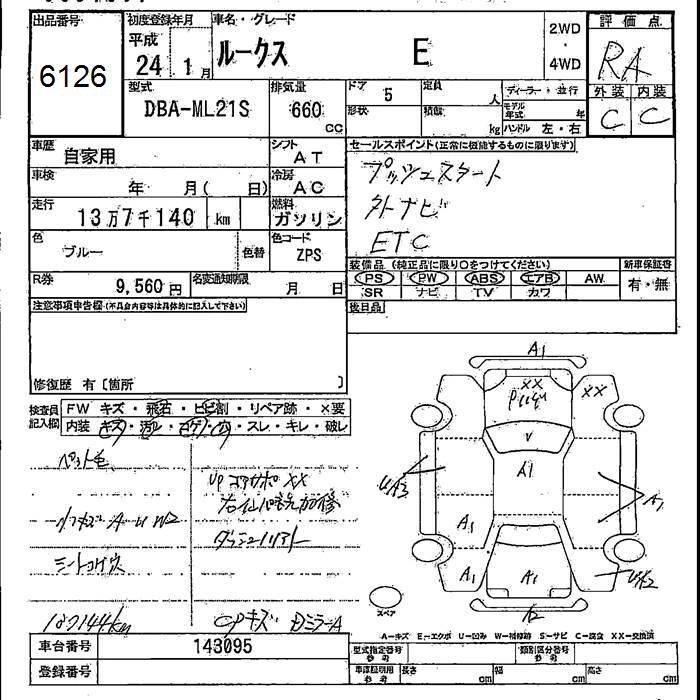 出品番号 初度登録年月 車名・グレード 2WD・4WD 評価点
6126 平成 24 1月 ルークス E RA
外装 内装
C C
型式 排気量 ドア 定員 ディーラー・並行
DBA-ML21S 660 cc 5 人
形状 積載 kg モデル年式 年
ハンドル 左・右
車歴 自家用 シフト AT
セールスポイント(正常に機能するものに限ります)
プッシュスタート
外ナビ
ETC
車検 年 月( 日) 冷房 AC
走行 13万7千140 km 燃料 ガソリン
色 ブルー 色替 色コード ZPS
装備品 (純正品に限り○をつけてください) 新車保証書
PS PW ABS エアB AW 有・無
SR ナビ TV カワ
R券 9,560円 名変通知期限 月 日
後日品
注意事項申告欄(不具合内容等は具体的に記入して下さい)
修復歴 有〔箇所 〕
検査員記入欄 FW キズ・飛石・ヒビ割・リペア跡・×要
内装 キズ・汚レ・コゲ・穴・スレ・キレ・破レ
ペット毛
UP コアサポ XX
シートコゲ穴
137144km
A1
XX XX
V
A1
UA3
A1 A1
A1 A1 U2
スペア
A2
A-キズ E-エクボ U-凹み W-補修跡 S-サビ C-腐食 XX-交換済
車台番号 143095
登録番号
型式指定番号 参考 類別区分番号 参考
車庫証明用 参考 長さ cm 幅 cm 高さ cm